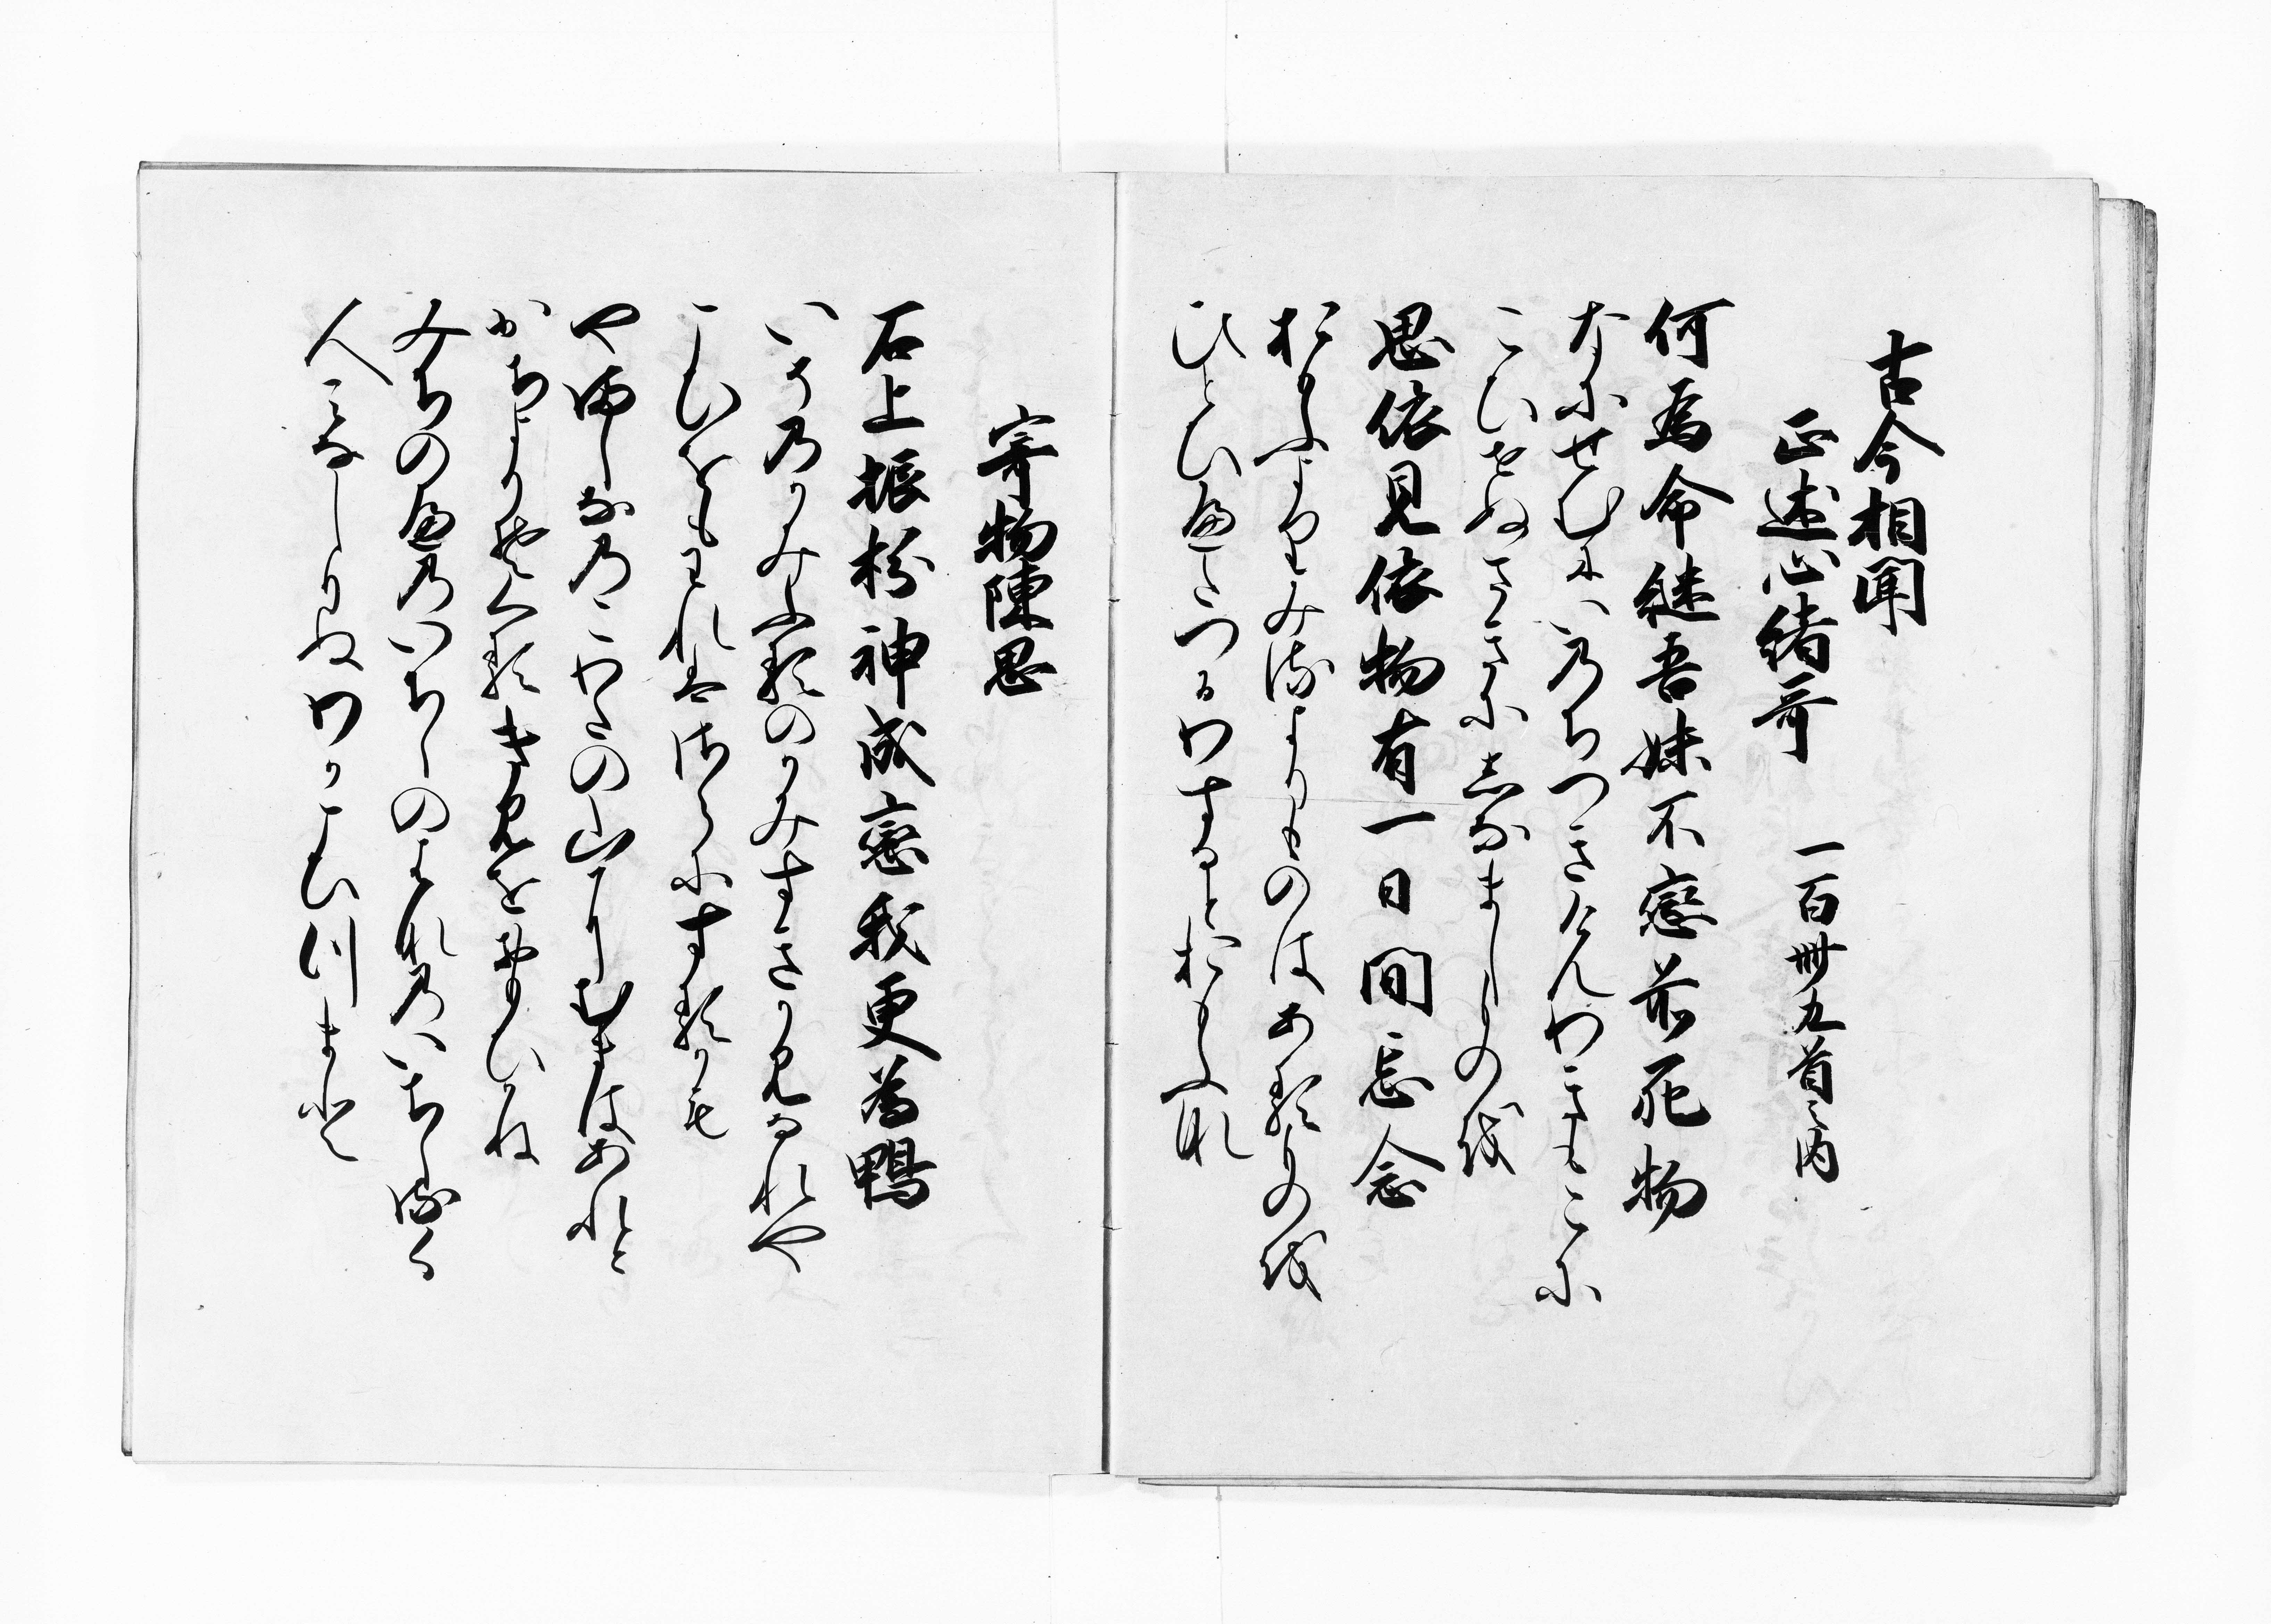 古今相聞
正述心緒哥 一百卌九首之内
何爲命継吾妹不戀前死物
なにせむにいのちつきけんわきもこに
こひせぬさきにしなましものを
思依見依物有一日間忘念
おもふよりみるよりものはあるものを
ひとひへたつるわするとおもふな
寄物陳思
石上振杉神成戀我更為鴨
いそのかみふるのかみすきかみなれや
こひをもわれはさらにするかも
やましなのこわたの山にむまはあれと
かちよりそくるきみをおもひかね
みちのへのいちしのはなのいちしるく
人みなしりぬわかこひつま